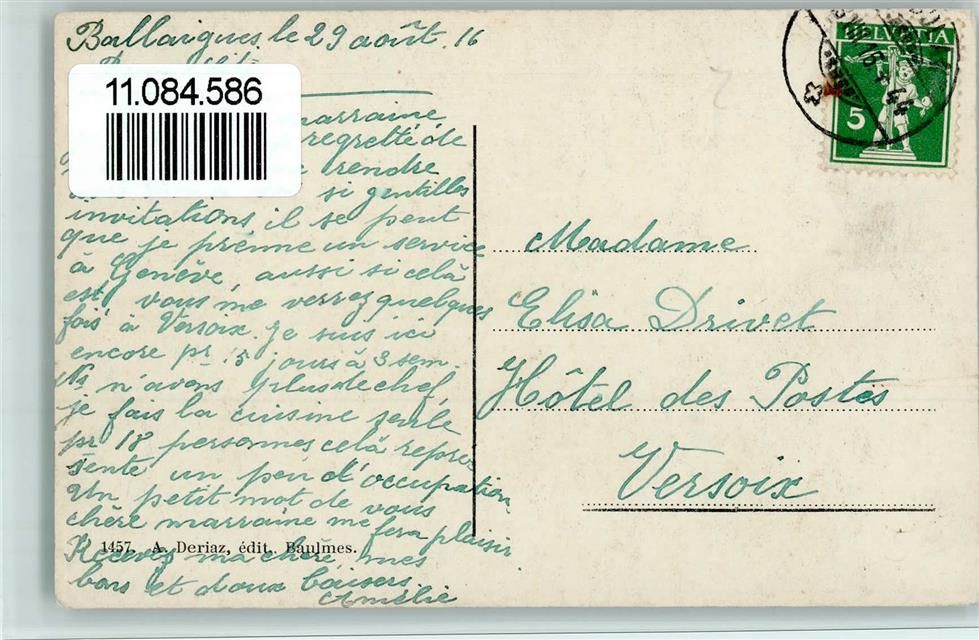 Ballaigues, le 29 août. 16
11.084.586
marraine
regretté de
rendre
si gentilles
invitations il se peut
que je prenne un service
à Genève, aussi si celà
est, vous me verrez quelques
fois à Versoix. Je suis ici
encore pr. 15 jours à 3 sem.
Ns n'avons plus de chef,
je fais la cuisine seule
pr 18 personnes celà repré
sente un peu d'occupation
Un petit mot de vous
chère marraine me fera plaisir
Recevez ma chère, mes
bons et doux baisers.
Amélie
1457. A. Deriaz, édit. Baulmes.
HELVETIA
5
Madame
Elisa Drivet
Hôtel des Postes
Versoix